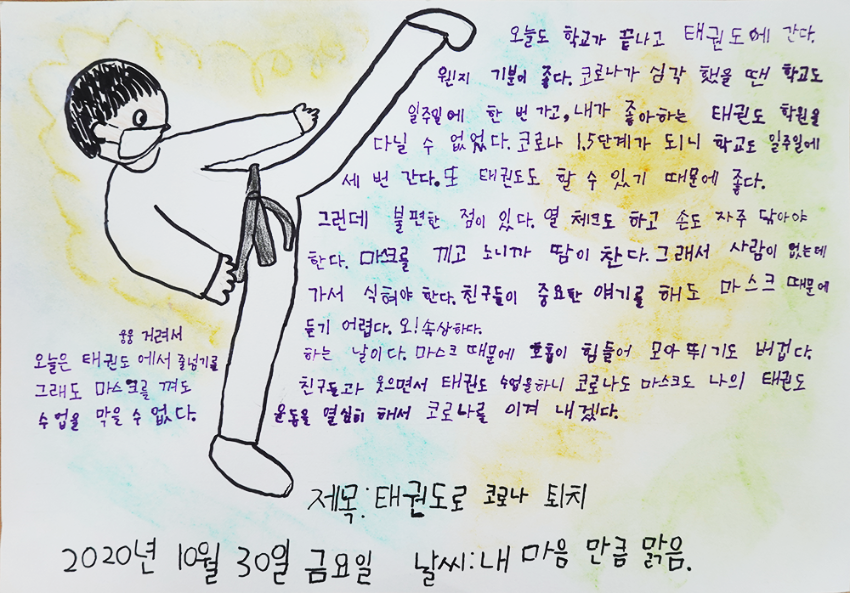 오늘도 학교가 끝나고 태권도에 간다.
웬지 기분이 좋다. 코로나가 심각 했을 땐 학교도
일주일에 한 번 가고, 내가 좋아하는 태권도 학원을
다닐 수 없었다. 코로나 1.5단계가 되니 학교도 일주일에
세 번 간다. 또 태권도도 할 수 있기 때문에 좋다.
그런데 불편한 점이 있다. 열 체크도 하고 손도 자주 닦아야
한다. 마스크를 끼고 노니까 땀이 찬다. 그래서 사람이 없는데
가서 식혀야 한다. 친구들이 중요한 얘기를 해도 마스크 때문에
듣기 어렵다. 오! 속상하다.
웅웅 거려서
오늘은 태권도 에서 줄넘기를
하는 날이다. 마스크 때문에 호흡이 힘들어 모아 뛰기도 버겁다.
그래도 마스크를 껴도
친구들과 웃으면서 태권도 수업을하니 코로나도 마스크도 나의 태권도
수업을 막을 수 없다.
운동을 열심히 해서 코로나를 이겨 내겠다.
제목:태권도로 코로나 퇴치
2020년 10월 30일 금요일 날씨:내 마음 만큼 맑음.